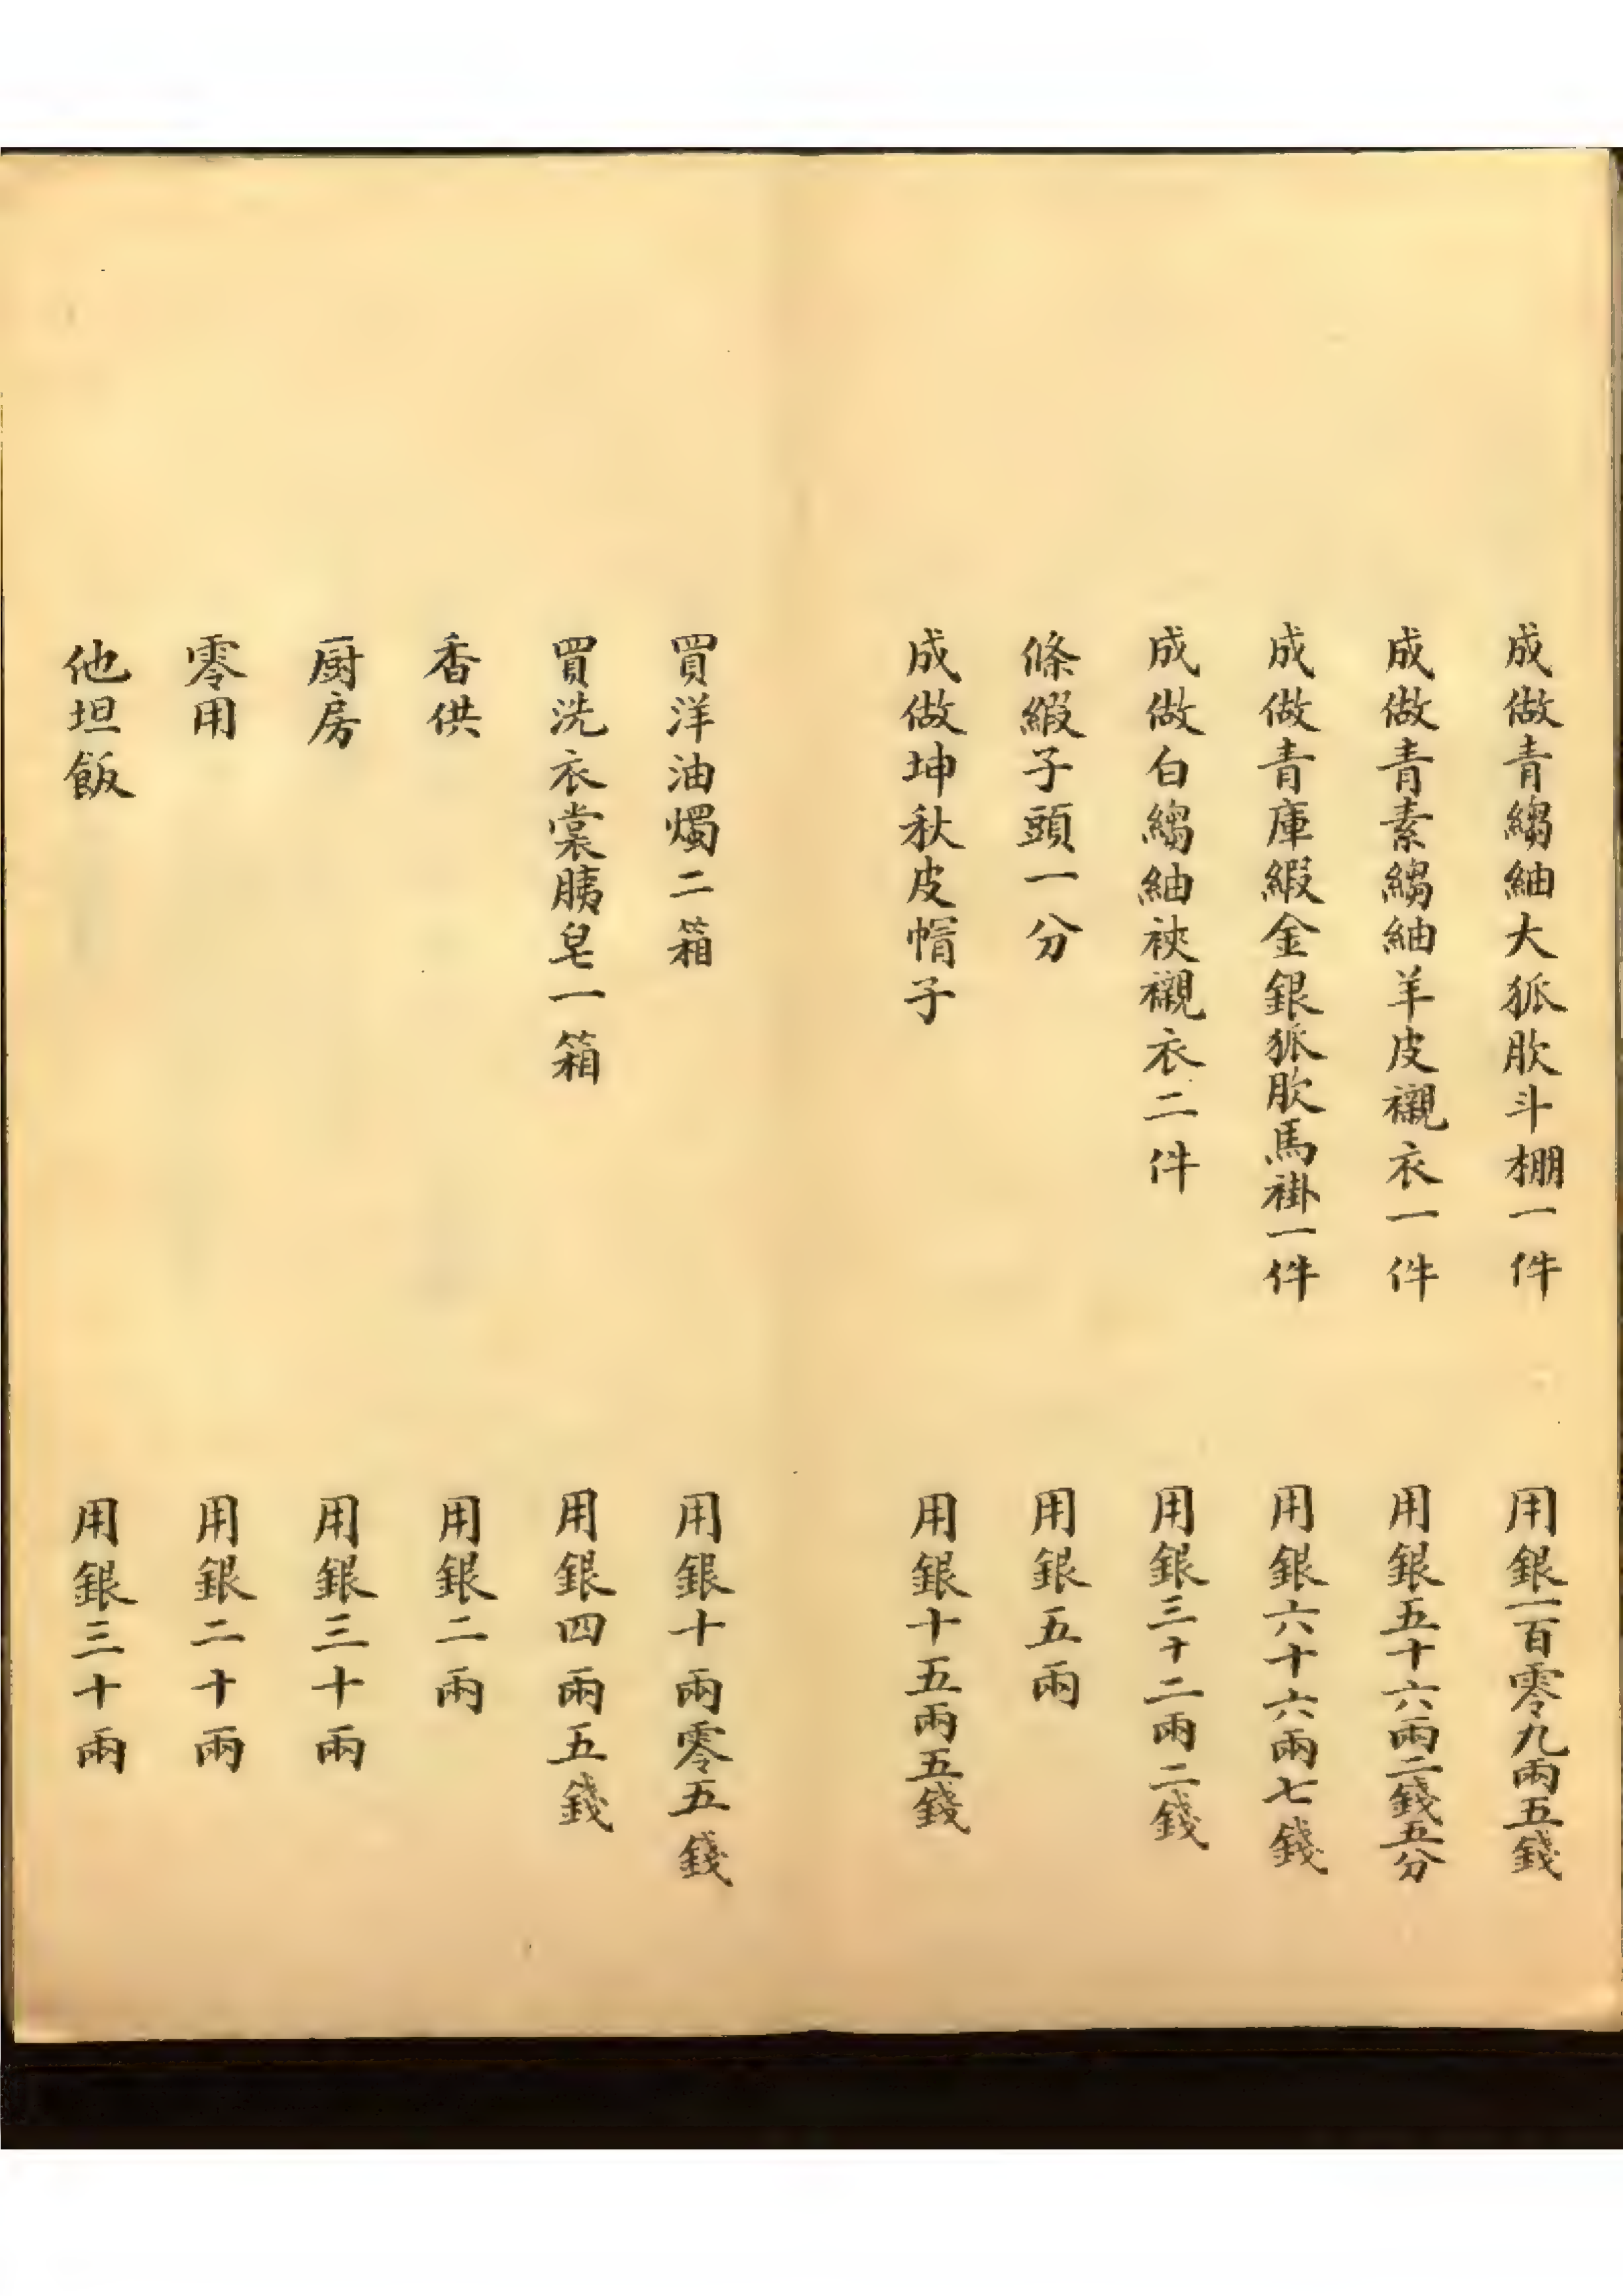 成做青縐紬大狐肷斗棚一件 用銀一百零九兩五錢
成做青素縐紬羊皮襯衣一件 用銀五十六兩二錢五分
成做青庫緞金銀狐肷馬褂一件 用銀六十六兩七錢
成做白縐紬裌襯衣二件 用銀三十二兩二錢
絛緞子頭一分 用銀五兩
成做坤秋皮帽子 用銀十五兩五錢
買洋油燭二箱 用銀十兩零五錢
買洗衣裳胰皂一箱 用銀四兩五錢
香供 用銀二兩
厨房 用銀三十兩
零用 用銀二十兩
他坦飯 用銀三十兩